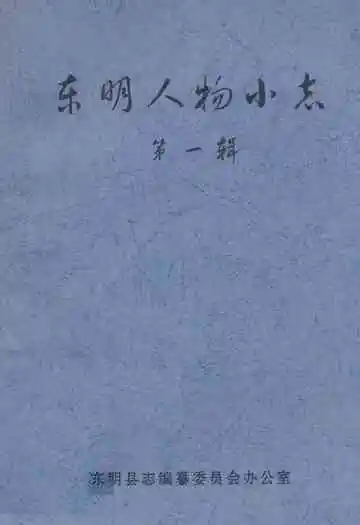 东明人物小志
第一辑
东明县志编纂委员会办公室